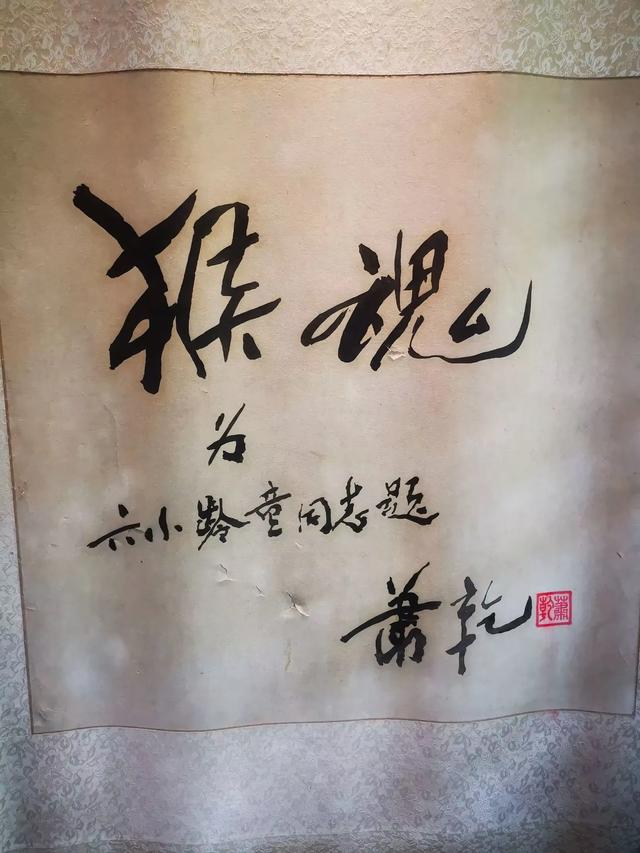 猴魂
为
六小龄童同志题
萧乾
萧乾